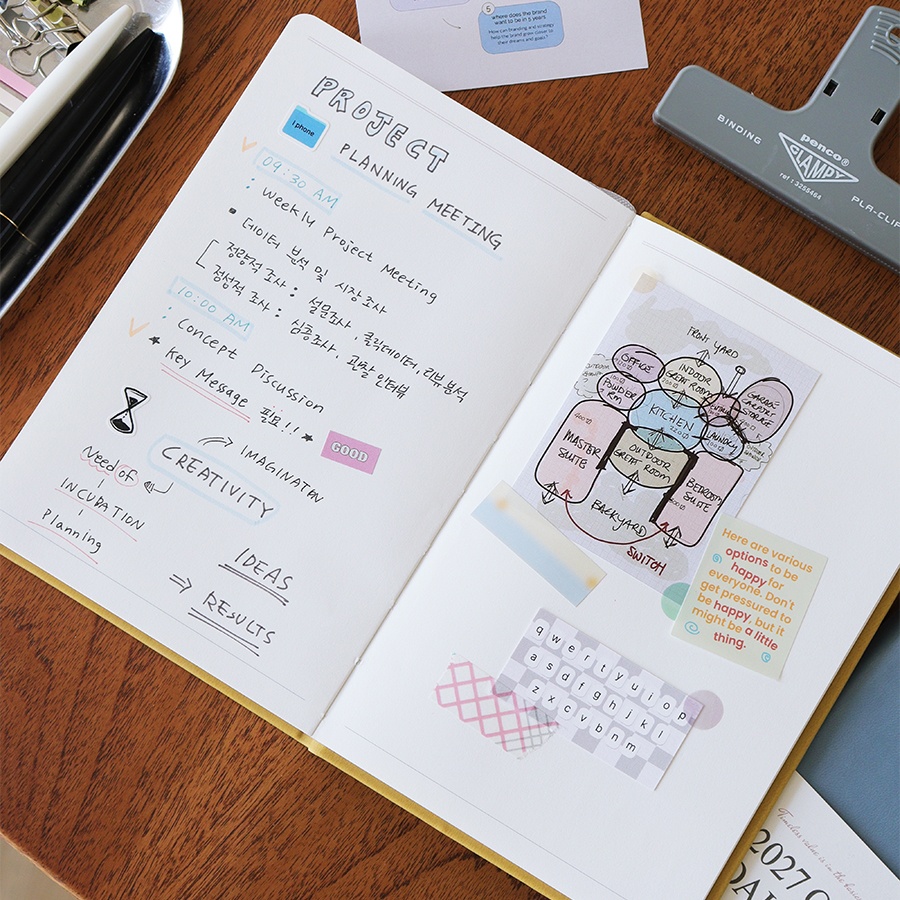 5
where does the brand
want to be in 5 years
How can branding and strategy
help the brand grow closer to
their dreams and goals?
BINDING
penco®
CLAMPY
ref / 3255464
PLA-CLIP
PROJECT
i phone
PLANNING MEETING
09:30 AM
: Weekly Project Meeting
• 데이터 분석 및 시장조사
정량적 조사 : 설문조사, 클릭데이터, 리뷰분석
정성적 조사 : 심층조사, 관찰 인터뷰
10:00 AM
: Concept Discussion
★ Key Message 필요!! ★
GOOD
IMAGINATION
CREATIVITY
Need of
INCUBATION
Planning
IDEAS
⇒ RESULTS
FRONT YARD
OFFICE
INDOOR
GREAT ROOM
POWDER
RM
GARAGE
STORAGE
KITCHEN
LAUNDRY
MASTER
SUITE
OUTDOOR
GREAT ROOM
BEDROOM
SUITE
BACKYARD
SWITCH
Here are various
options to be
happy for
everyone. Don't
get pressured to
be happy, but it
might be a little
thing.
q w e r t y u i o p
a s d f g h j k l
z x c v b n m
Timeless value is in the basic
2027